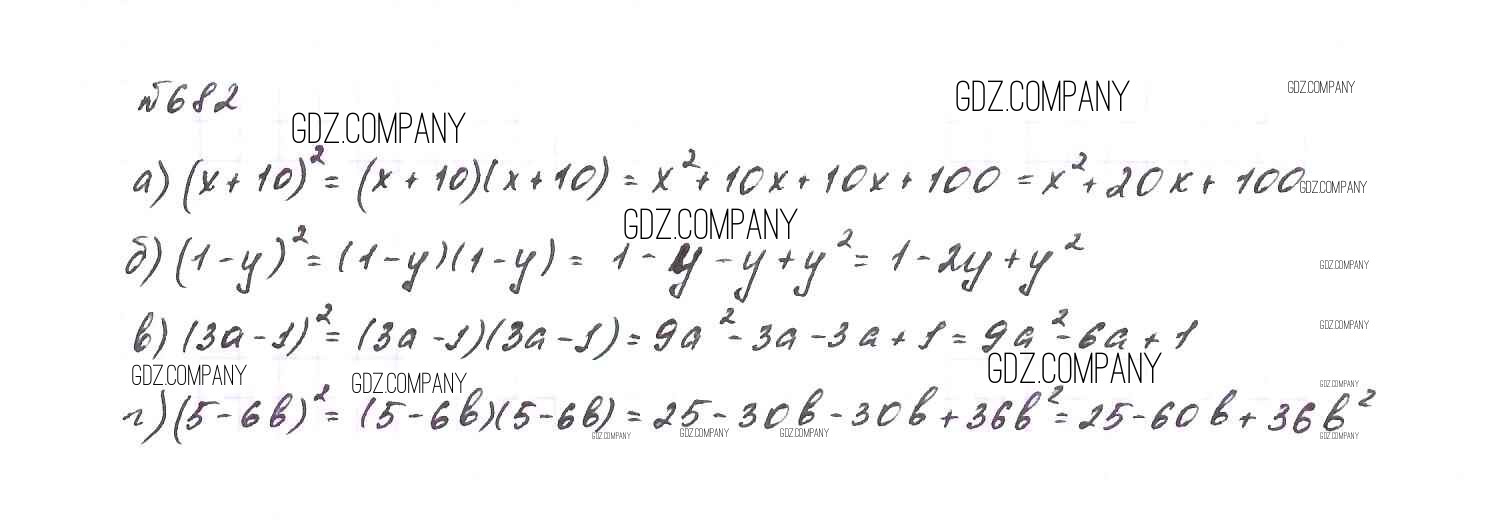 №682
GDZ.COMPANY GDZ.COMPANY
GDZ.COMPANY
а) (x + 10)² = (x + 10)(x + 10) = x² + 10x + 10x + 100 = x² + 20x + 100
GDZ.COMPANY
GDZ.COMPANY
б) (1 - y)² = (1 - y)(1 - y) = 1 - y - y + y² = 1 - 2y + y²
GDZ.COMPANY
в) (3a - 1)² = (3a - 1)(3a - 1) = 9a² - 3a - 3a + 1 = 9a² - 6a + 1
GDZ.COMPANY
GDZ.COMPANY GDZ.COMPANY GDZ.COMPANY GDZ.COMPANY
г) (5 - 6b)² = (5 - 6b)(5 - 6b) = 25 - 30b - 30b + 36b² = 25 - 60b + 36b²
GDZ.COMPANY GDZ.COMPANY GDZ.COMPANY GDZ.COMPANY